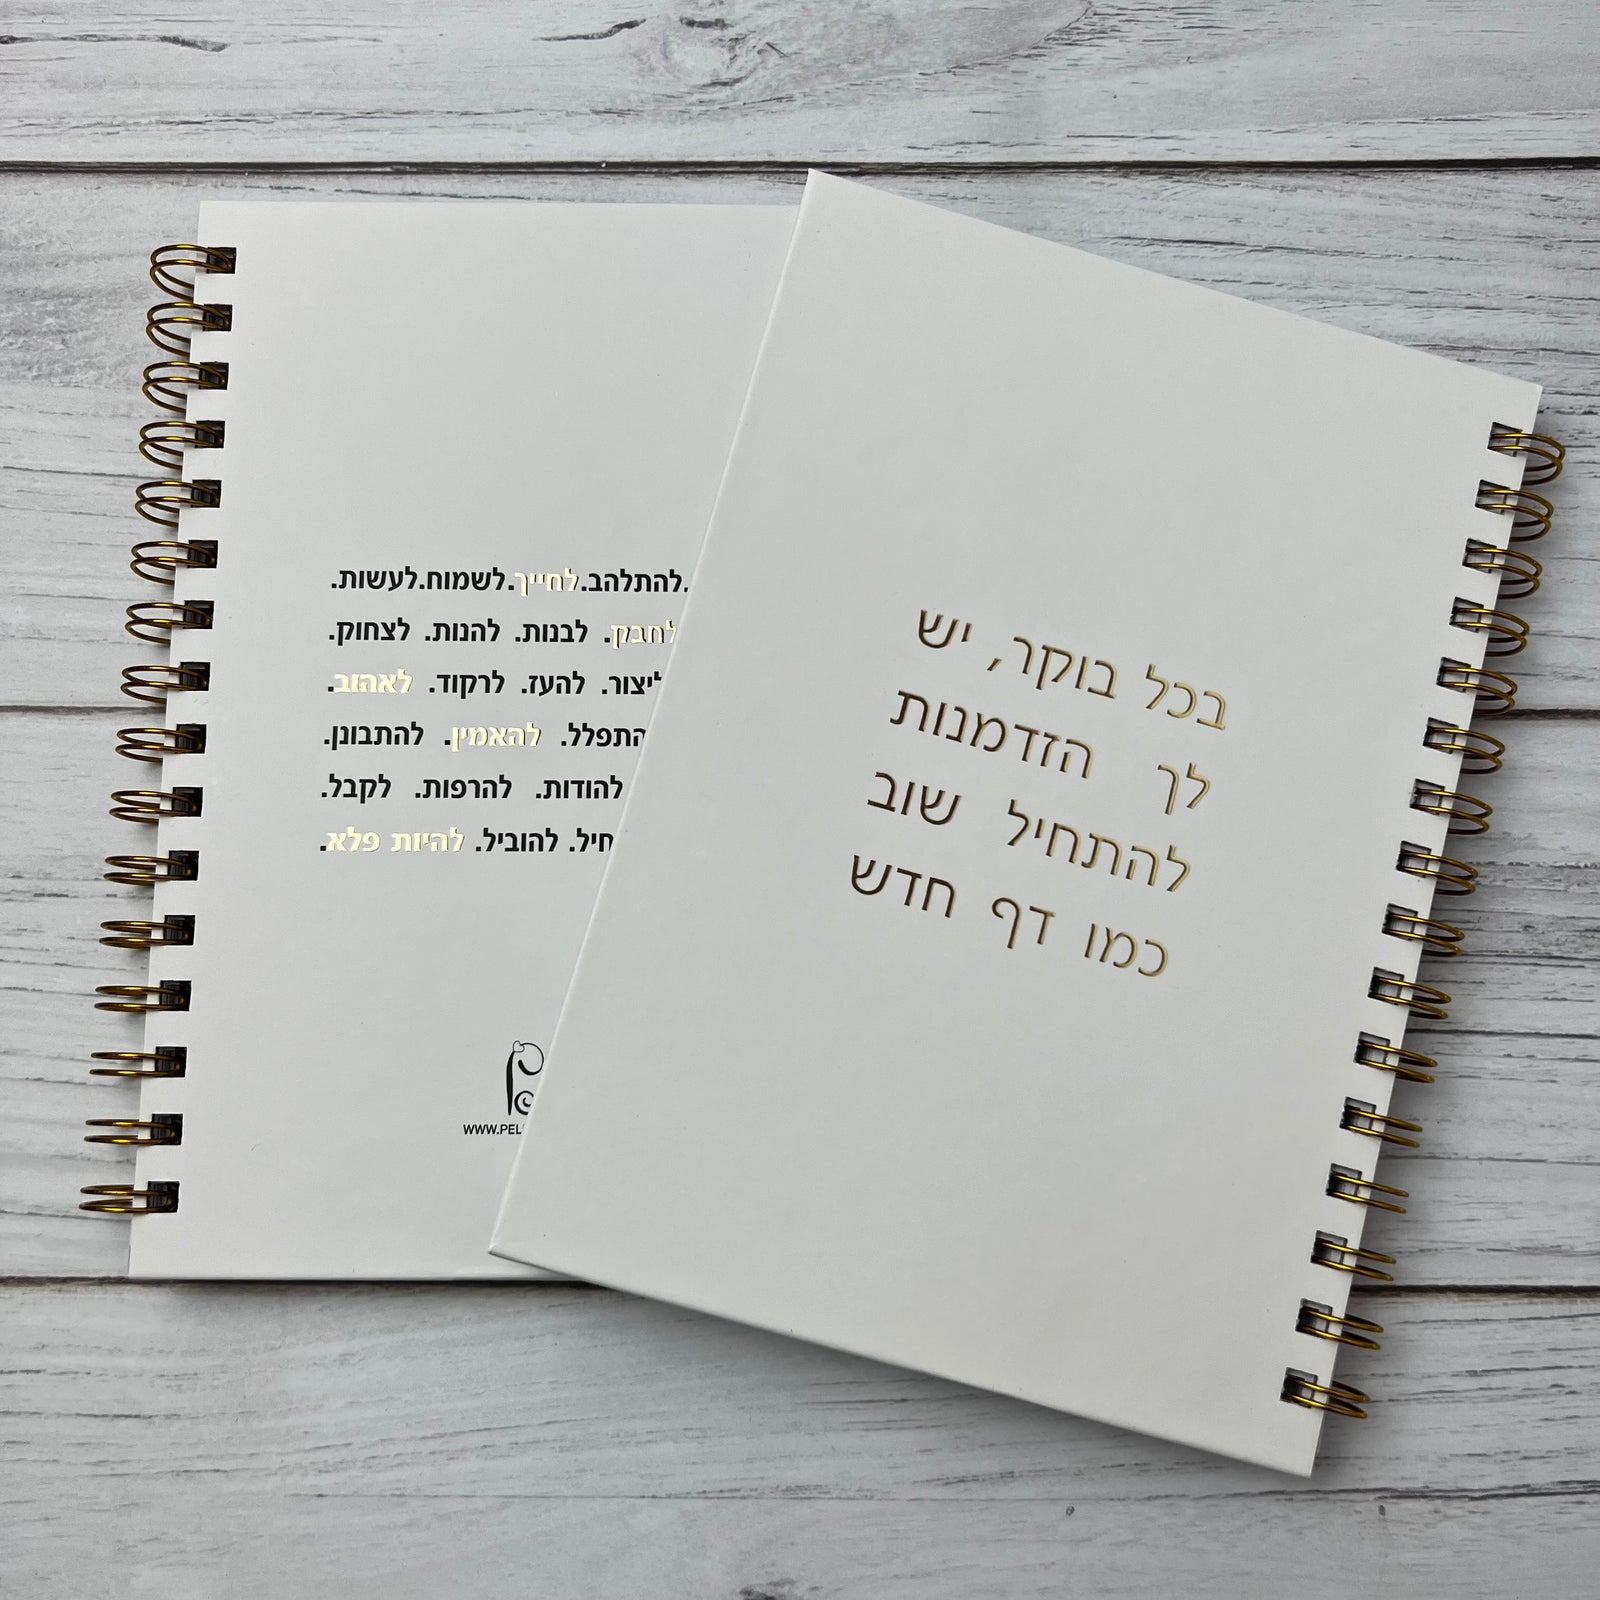 בכל בוקר, יש
לך הזדמנות
להתחיל שוב
כמו דף חדש
.להתלהב.לחייך.לשמוח.לעשות.
לחבק. לבנות. להנות. לצחוק.
ליצור. להעז. לרקוד. לאהוב.
להאמין. להתבונן.
להודות. להרפות. לקבל.
להוביל. להיות פלא.